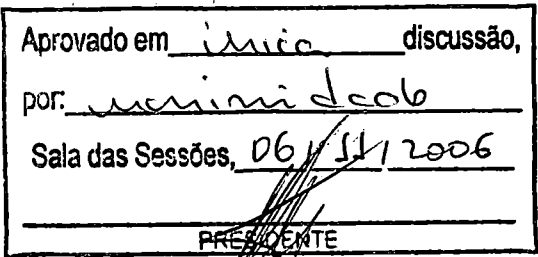 Aprovado em única discussão,
por: unanimidade
Sala das Sessões, 06/11/2006
PRESIDENTE